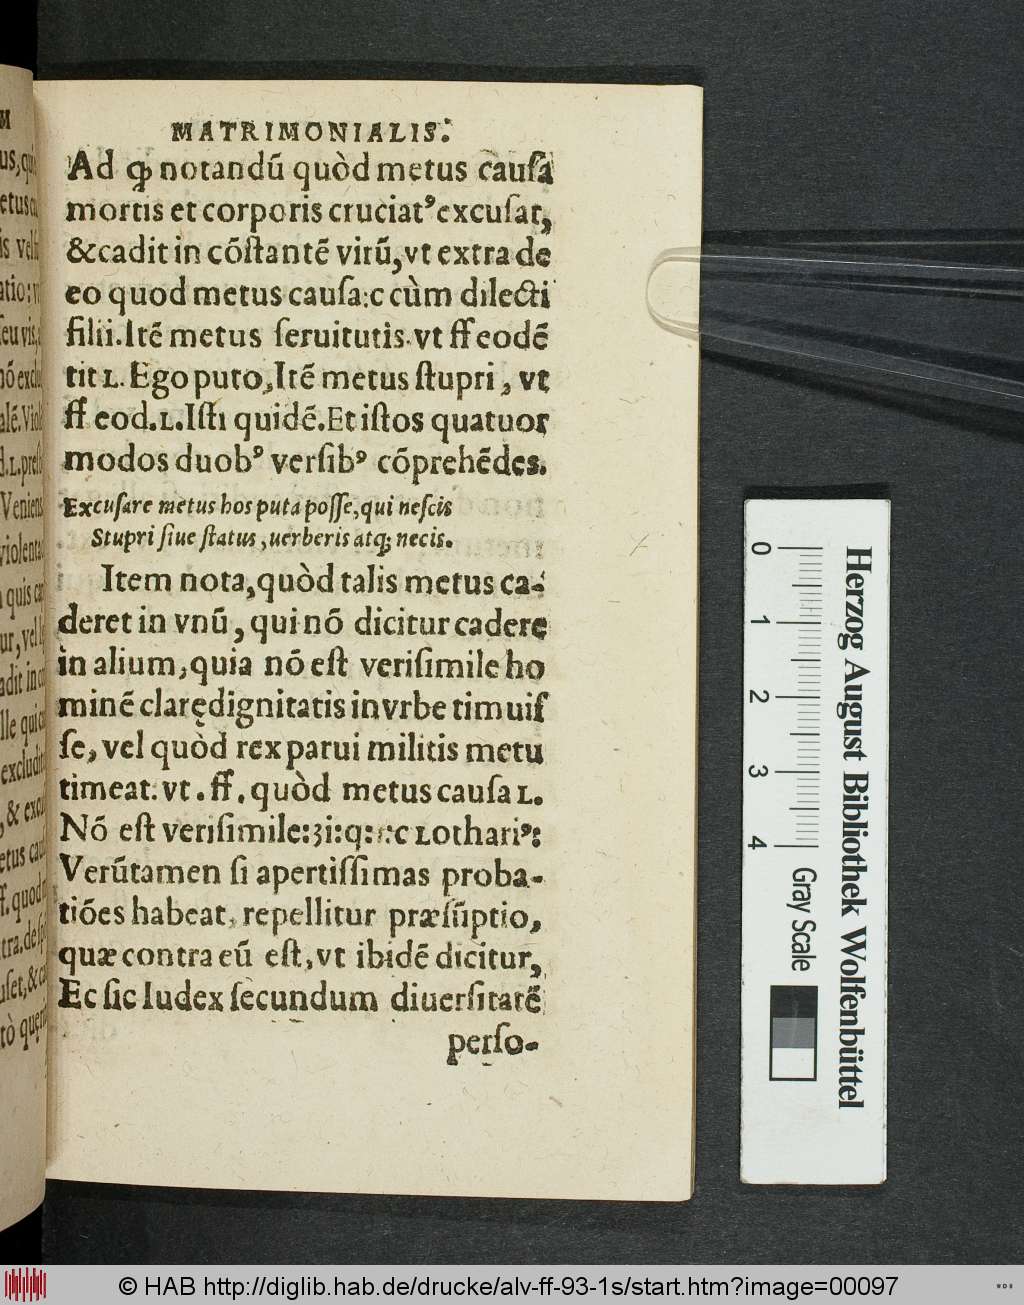 MATRIMONIALIS.
Ad ꝙ notandū quòd metus cauſa
mortis et corporis cruciatꝰ excuſat,
&cadit in cōſtantē virū, vt extra de
eo quod metus cauſa: c cùm dilecti
filii. Itē metus ſeruitutis. vt ff eodē
tit L. Ego puto, Itē metus ſtupri, vt
ff eod. L. Iſti quidē. Et iſtos quatuor
modos duobꝰ verſibꝰ cōprehēdes.
Excuſare metus hos puta poſſe, qui neſcis
Stupri ſiue ſtatus, uerberis atq; necis.
Item nota, quòd talis metus ca-
deret in vnū, qui nō dicitur cadere
in alium, quia nō eſt veriſimile ho
minē clarędignitatis in vrbe timuiſ
ſe, vel quòd rex parui militis metu
timeat. vt. ff. quòd metus cauſa L.
Nō eſt veriſimile: 3i: q: c Lothariꝰ:
Verūtamen ſi apertiſſimas proba-
tiōes habeat, repellitur præſūptio,
quæ contra eū eſt, vt ibidē dicitur,
Ec ſic Iudex ſecundum diuerſitatē
perſo-
0 1 2 3 4
Gray Scale
Herzog August Bibliothek Wolfenbüttel
© HAB http://diglib.hab.de/drucke/alv-ff-93-1s/start.htm?image=00097